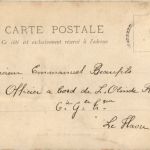 CARTE POSTALE
Ce côté est exclusivement réservé à l'adresse
Emmanuel Beaufils
Officier à bord de L. Claude
Cie Gle
Le Havre